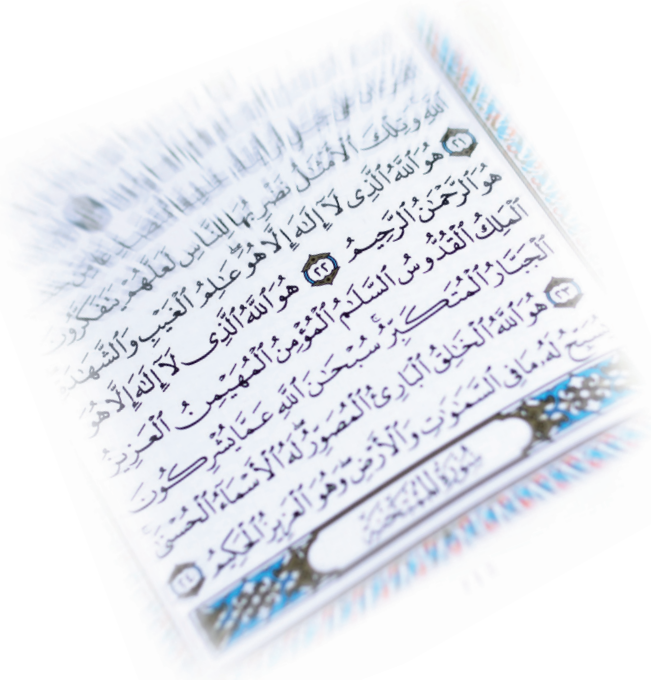 ٱللَّهِ وَتِلْكَ ٱلْأَمْثَٰلُ نَضْرِبُهَا لِلنَّاسِ لَعَلَّهُمْ يَتَفَكَّرُونَ
٢١ هُوَ ٱللَّهُ ٱلَّذِى لَآ إِلَٰهَ إِلَّا هُوَۖ عَٰلِمُ ٱلْغَيْبِ وَٱلشَّهَٰدَةِ
هُوَ ٱلرَّحْمَٰنُ ٱلرَّحِيمُ ٢٢ هُوَ ٱللَّهُ ٱلَّذِى لَآ إِلَٰهَ إِلَّا هُوَ
ٱلْمَلِكُ ٱلْقُدُّوسُ ٱلسَّلَٰمُ ٱلْمُؤْمِنُ ٱلْمُهَيْمِنُ ٱلْعَزِيزُ
ٱلْجَبَّارُ ٱلْمُتَكَبِّرُۚ سُبْحَٰنَ ٱللَّهِ عَمَّا يُشْرِكُونَ
٢٣ هُوَ ٱللَّهُ ٱلْخَٰلِقُ ٱلْبَارِئُ ٱلْمُصَوِّرُۖ لَهُ ٱلْأَسْمَآءُ ٱلْحُسْنَىٰۚ
يُسَبِّحُ لَهُۥ مَا فِى ٱلسَّمَٰوَٰتِ وَٱلْأَرْضِۖ وَهُوَ ٱلْعَزِيزُ ٱلْحَكِيمُ ٢٤
سُورَةُ المُمْتَحنَةِ